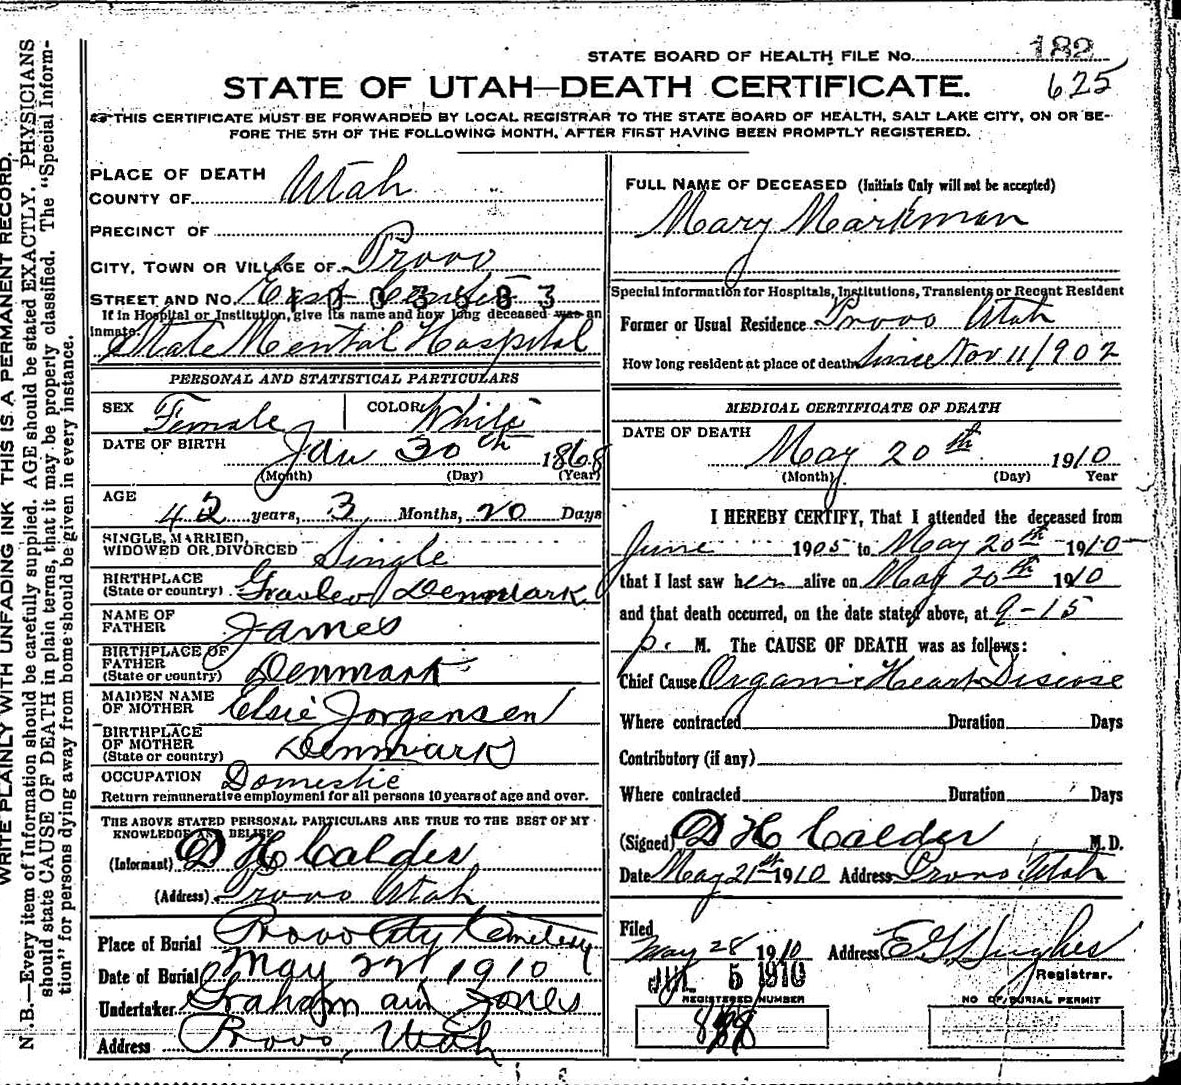 STATE BOARD OF HEALTH FILE No. 182
625
STATE OF UTAH—DEATH CERTIFICATE.
THIS CERTIFICATE MUST BE FORWARDED BY LOCAL REGISTRAR TO THE STATE BOARD OF HEALTH, SALT LAKE CITY, ON OR BE-
FORE THE 5TH OF THE FOLLOWING MONTH, AFTER FIRST HAVING BEEN PROMPTLY REGISTERED.
WRITE PLAINLY WITH UNFADING INK THIS IS A PERMANENT RECORD.
N.B.—Every item of Information should be carefully supplied. AGE should be stated EXACTLY. PHYSICIANS
should state CAUSE OF DEATH in plain terms, that it may be properly classified. The "Special Inform-
tion" for persons dying away from home should be given in every instance.
PLACE OF DEATH
COUNTY OF Utah
PRECINCT OF
CITY, TOWN OR VILLAGE OF Provo
STREET AND No. East Center
If in Hospital or Institution, give its name and how long deceased was an
inmate. State Mental Hospital
PERSONAL AND STATISTICAL PARTICULARS
SEX Female COLOR White
DATE OF BIRTH Jan 30th 1868
(Month) (Day) (Year)
AGE
42 years, 3 Months, 20 Days
SINGLE, MARRIED,
WIDOWED OR DIVORCED Single
BIRTHPLACE
(State or country) Denmark
NAME OF
FATHER James
BIRTHPLACE OF
FATHER
(State or country) Denmark
MAIDEN NAME
OF MOTHER Elsie Jorgensen
BIRTHPLACE
OF MOTHER
(State or country) Denmark
OCCUPATION Domestic
Return remunerative employment for all persons 10 years of age and over.
THE ABOVE STATED PERSONAL PARTICULARS ARE TRUE TO THE BEST OF MY
KNOWLEDGE AND BELIEF
(Informant) D H Calder
(Address) Provo Utah
Place of Burial Provo City Cemetery
Date of Burial May 22d 1910
Undertaker Graham and Jones
Address Provo, Utah
FULL NAME OF DECEASED (Initials Only will not be accepted)
Mary Markman
Special information for Hospitals, Institutions, Transients or Recent Resident
Former or Usual Residence Provo Utah
How long resident at place of death Since Nov 11/902
MEDICAL CERTIFICATE OF DEATH
DATE OF DEATH
May 20th 1910
(Month) (Day) Year
I HEREBY CERTIFY, That I attended the deceased from
June 1905 to May 20th 1910
that I last saw her alive on May 20th 1910
and that death occurred, on the date stated above, at 9-15
p. M. The CAUSE OF DEATH was as follows:
Chief Cause Organic Heart Disease
Where contracted Duration Days
Contributory (if any)
Where contracted Duration Days
(Signed) D H Calder M.D.
Date May 21st 1910 Address Provo Utah
Filed
May 28 1910 Address E G Hughes
Registrar.
JUL 5 1910
REGISTERED NUMBER
NO OF BURIAL PERMIT